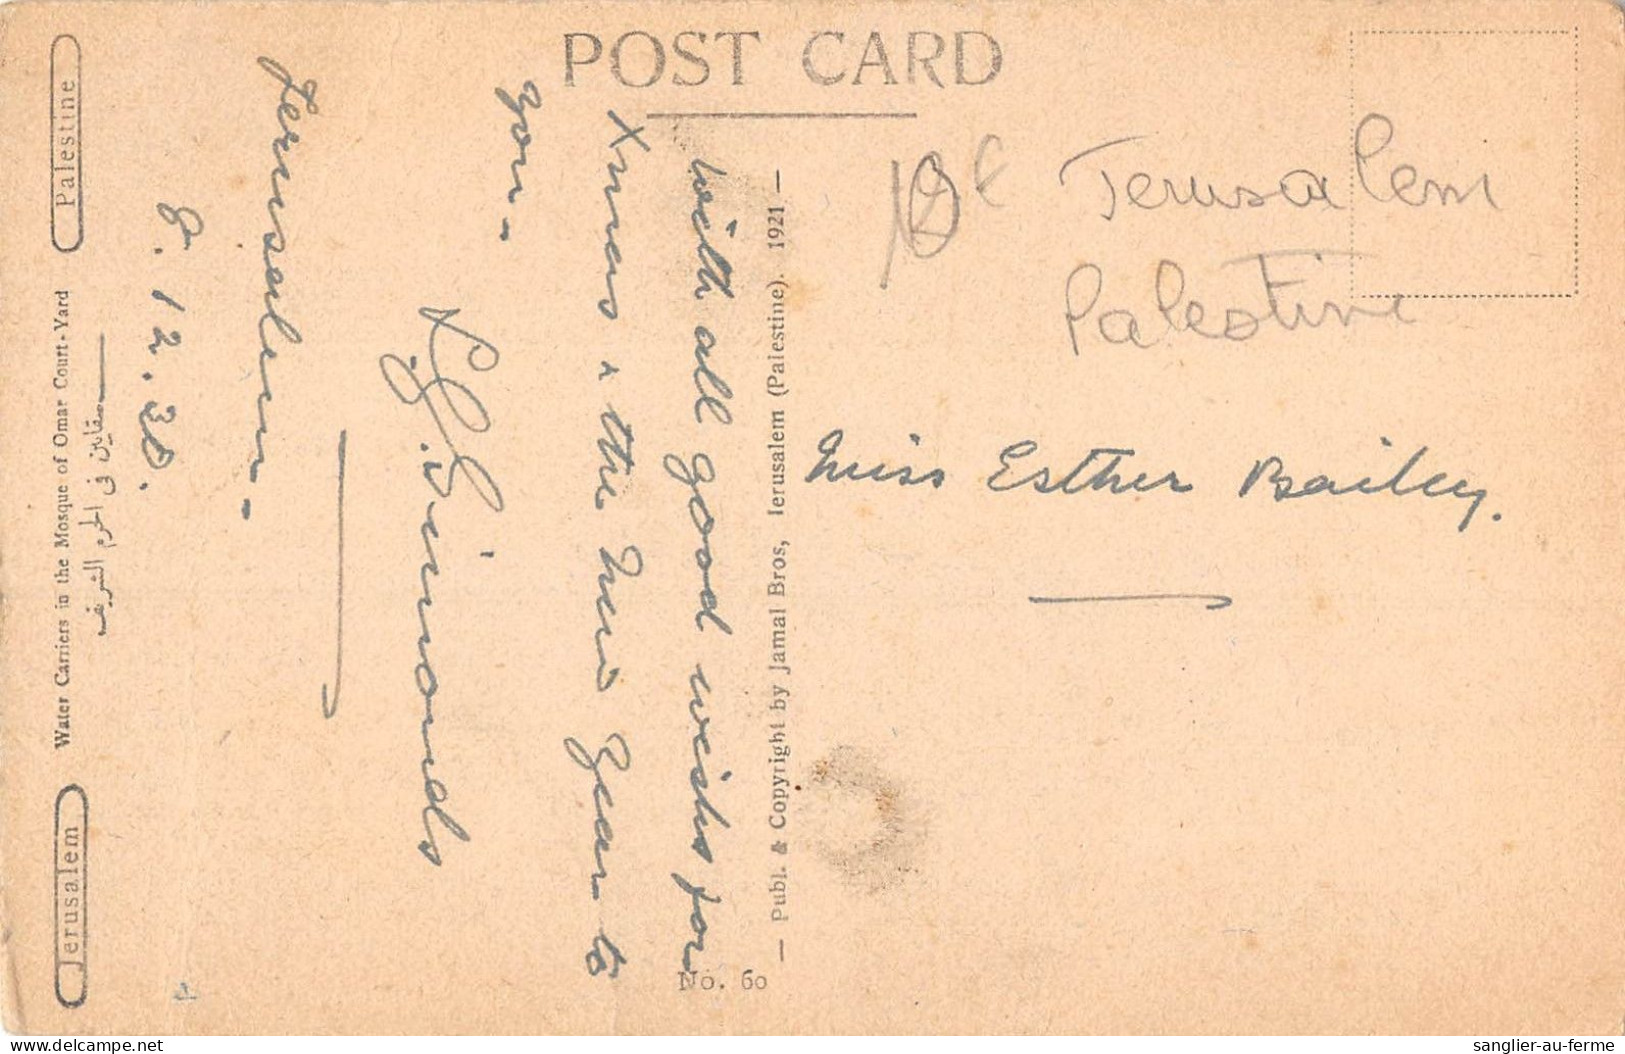 POST CARD
Palestine
Water Carriers in the Mosque of Omar Court-Yard
سقايين في الحرم الشريف
Jerusalem
8.12.30.
Jerusalem -
With all good wishes for
Xmas & the New Year to
you -
Simonds
— Publ. & Copyright by Jamal Bros, Jerusalem (Palestine). 1921 —
No. 60
Jerusalem
Palestine
Miss Esther Bailey.
delcampe.net
sanglier-au-ferme